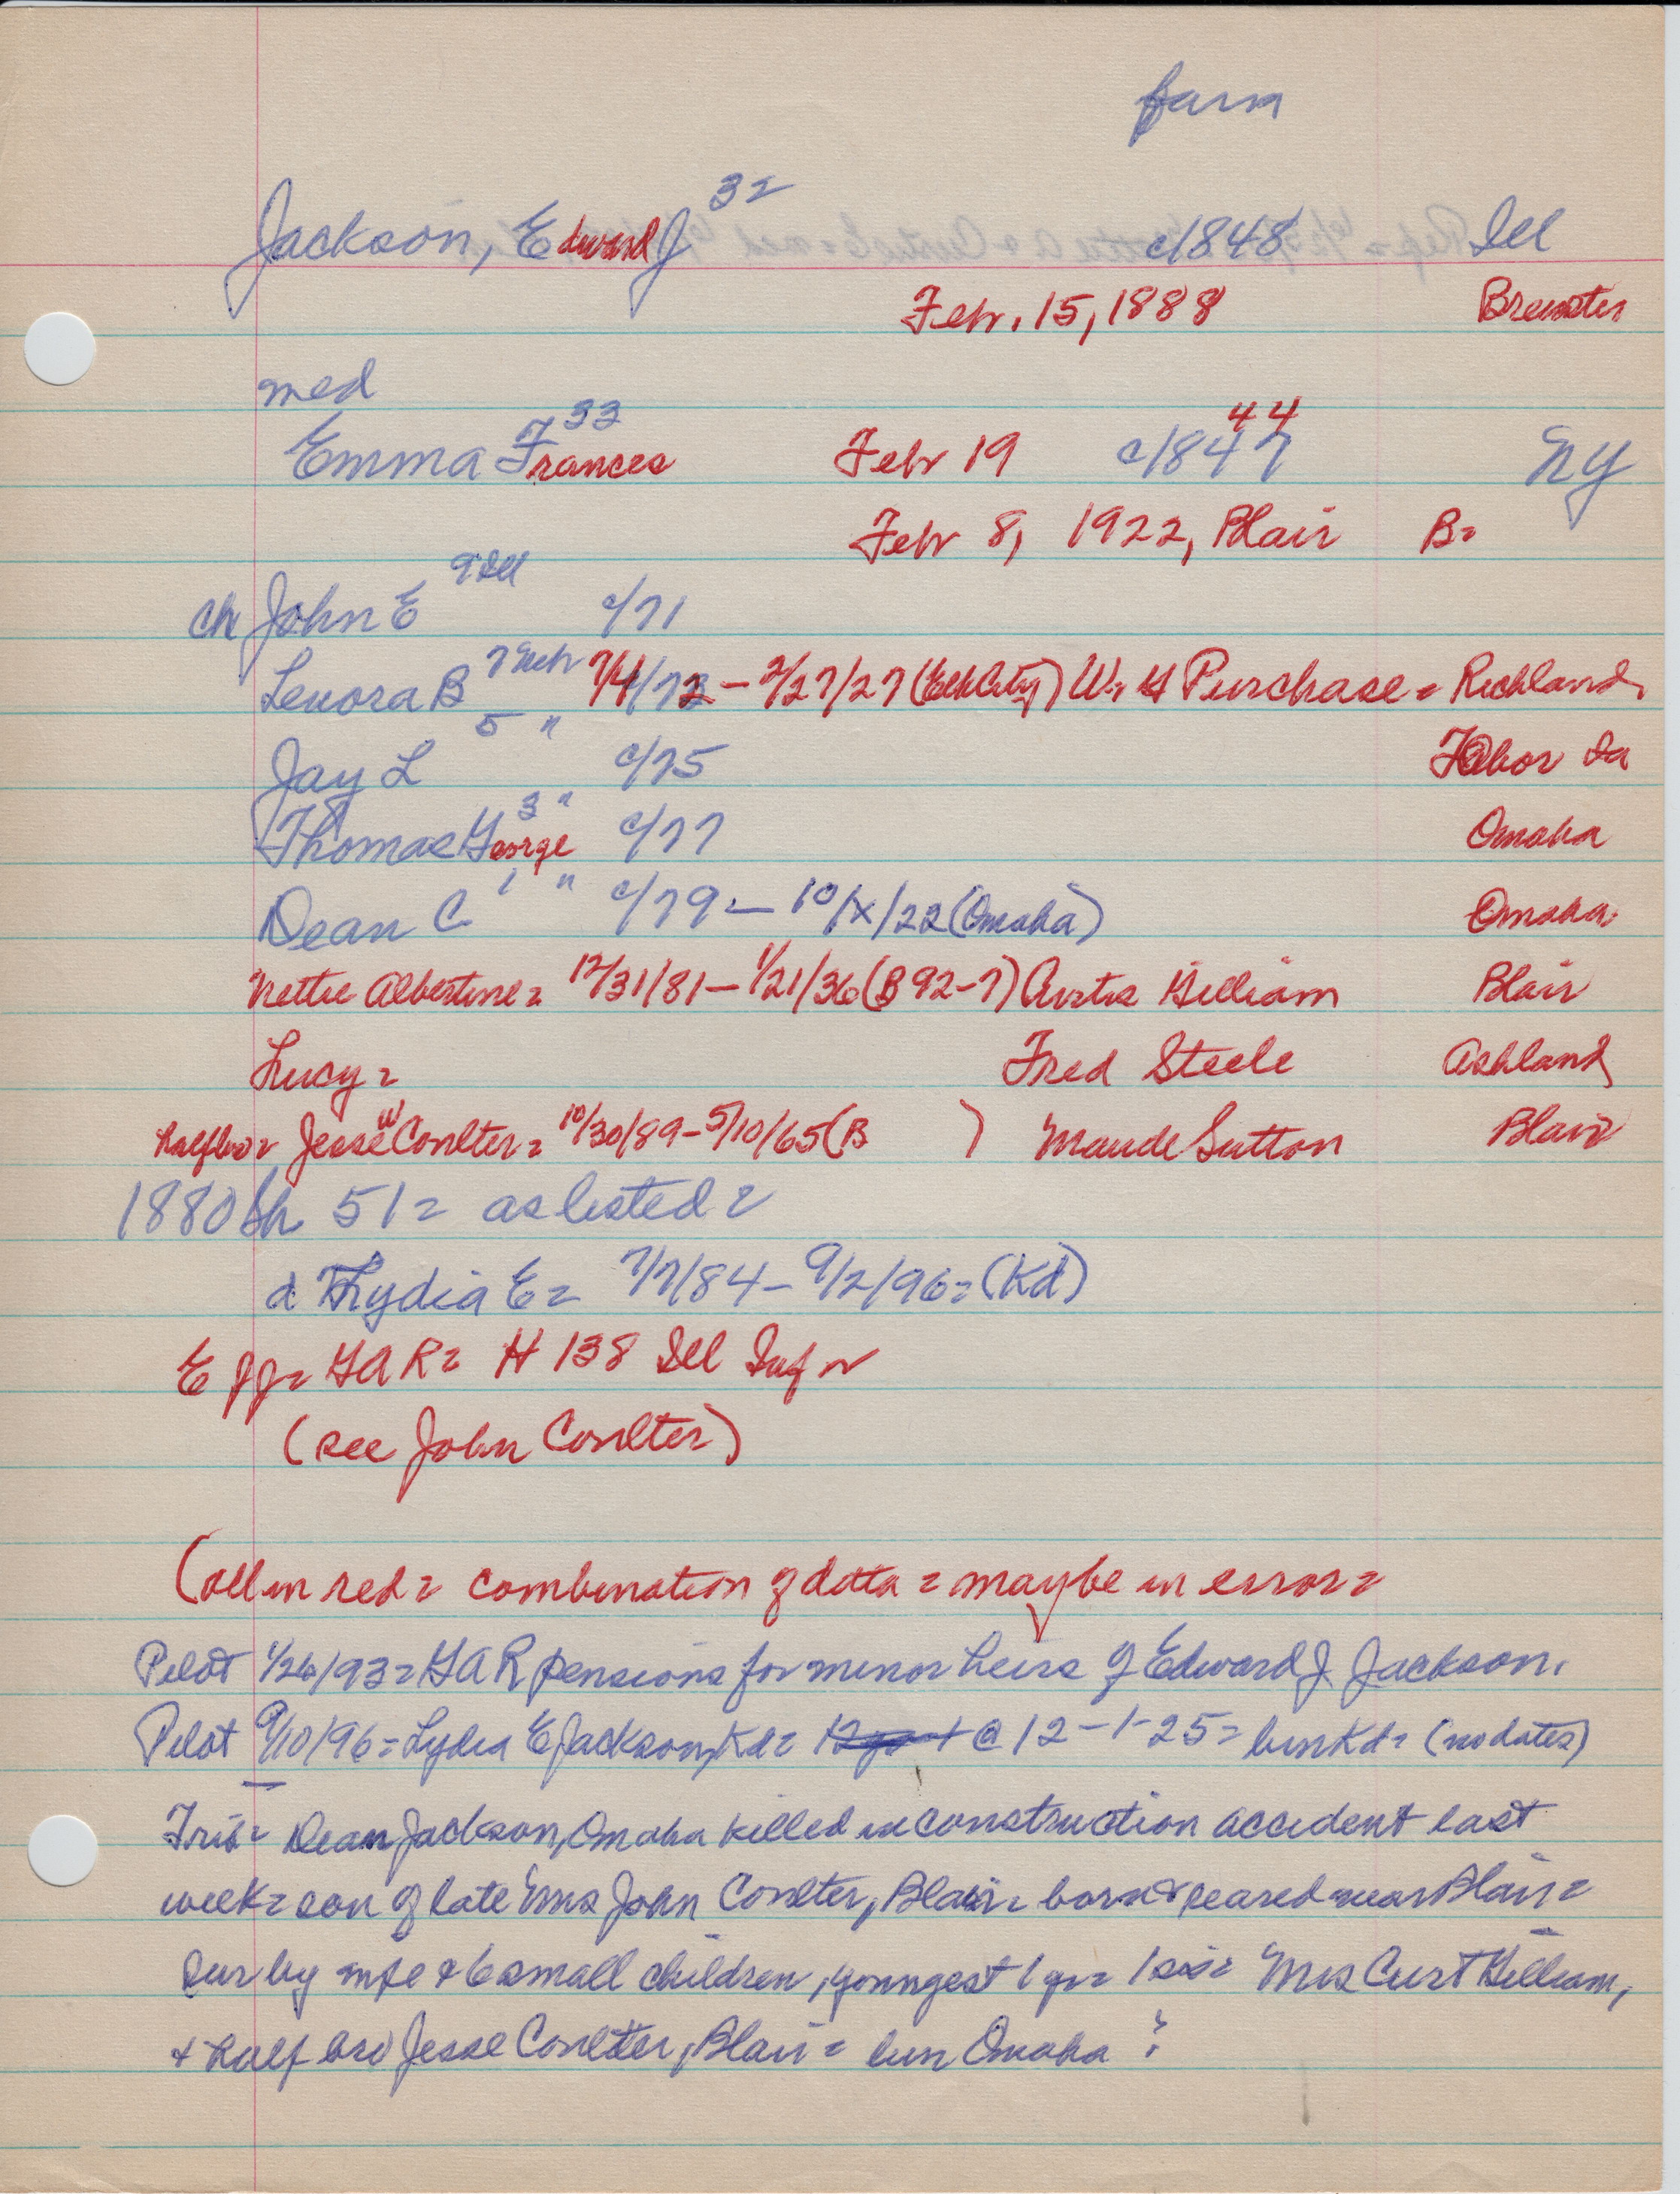 farm
Jackson, Edward J 32 c1848 Ill
Febr. 15, 1888 Brewster
med
Emma Frances 33 Febr 19 c1847 44 NY
Febr 8, 1922, Blair B=
ch John E 9 Ill c/71
Lenora B 7 Nebr 7/4/72 - 2/27/27 (Elk City) W. H Purchase = Richland
Jay L 5 " c/75 Tabor Ia
Thomas George 3 " c/77 Omaha
Dean C 1 " c/79 - 10/x/22 (Omaha) Omaha
Nettie Albertine = 12/31/81 - 1/21/36 (B 92-7) Curtis Gilliam Blair
Lucy = Fred Steele Ashland
halfbro = Jesse W Coulter = 10/30/89 - 5/10/65 (B ) Maude Sutton Blair
1880 Sh 51 = as listed =
d Lydia E = 7/7/84 - 9/2/96 = (Kd)
E JJ = GAR = H 138 Ill Infr
(see John Coulter)
(all in red = combination of data = maybe in error =
Pilot 1/26/93 = GAR pensions for minor heirs of Edward J. Jackson.
Pilot 9/10/96 = Lydia E Jackson, Kd = @ 12-1-25 = bur Kd = (no dates)
Trib = Dean Jackson, Omaha killed in construction accident last
week = son of late Mrs John Coulter, Blair = born & reared near Blair =
sur by wife & 6 small children, youngest 1 yr = 1 sis = Mrs Curt Gilliam,
& half bro Jesse Coulter, Blair = bur Omaha ?